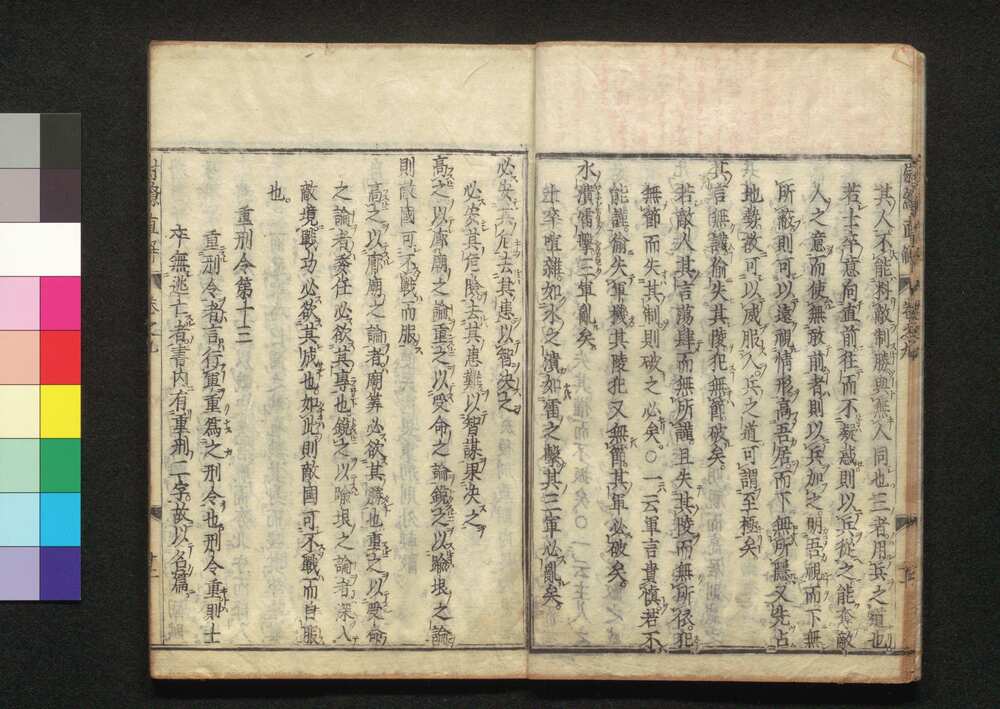 其人不能料敵制勝與無人同也三者用兵之道也
若士卒意向直前往而不疑惑則以兵從之能奪敵
人之意而使無敢前者則以兵加之明吾視而下無
所蔽則可以遠視情形高吾居而下無所隱又先占
地勢故可以威服人兵之道可謂至極矣
其言無謹偷失其陵犯無節破矣
若敵人其言蕩肆而無所謹且失其陵而無所從犯
無節而失其制則破之必矣〇一云軍言貴慎若不
能謹偷失軍機其陵犯又無節其軍必破矣
水潰雷擊三軍亂矣
士卒喧雜如水之潰如雷之擊其三軍必亂矣
必安其危去其患以智決之
必安其危險去其患難以智謀果決之
高之以廊廟之論重之以受命之論鏡之以踰垠之論
則敵國可不戰而服
高之以廊廟之論者廟筭必欲其勝也重之以受命
之論者委任必欲其專也鏡之以踰垠之論者深入
敵境戰功必欲其成也如此則敵國可不戰而自服
也
重刑令第十三
重刑令者言行軍重爲之刑令也刑令重則士
卒無逃亡者書内有重刑二字故以名篇